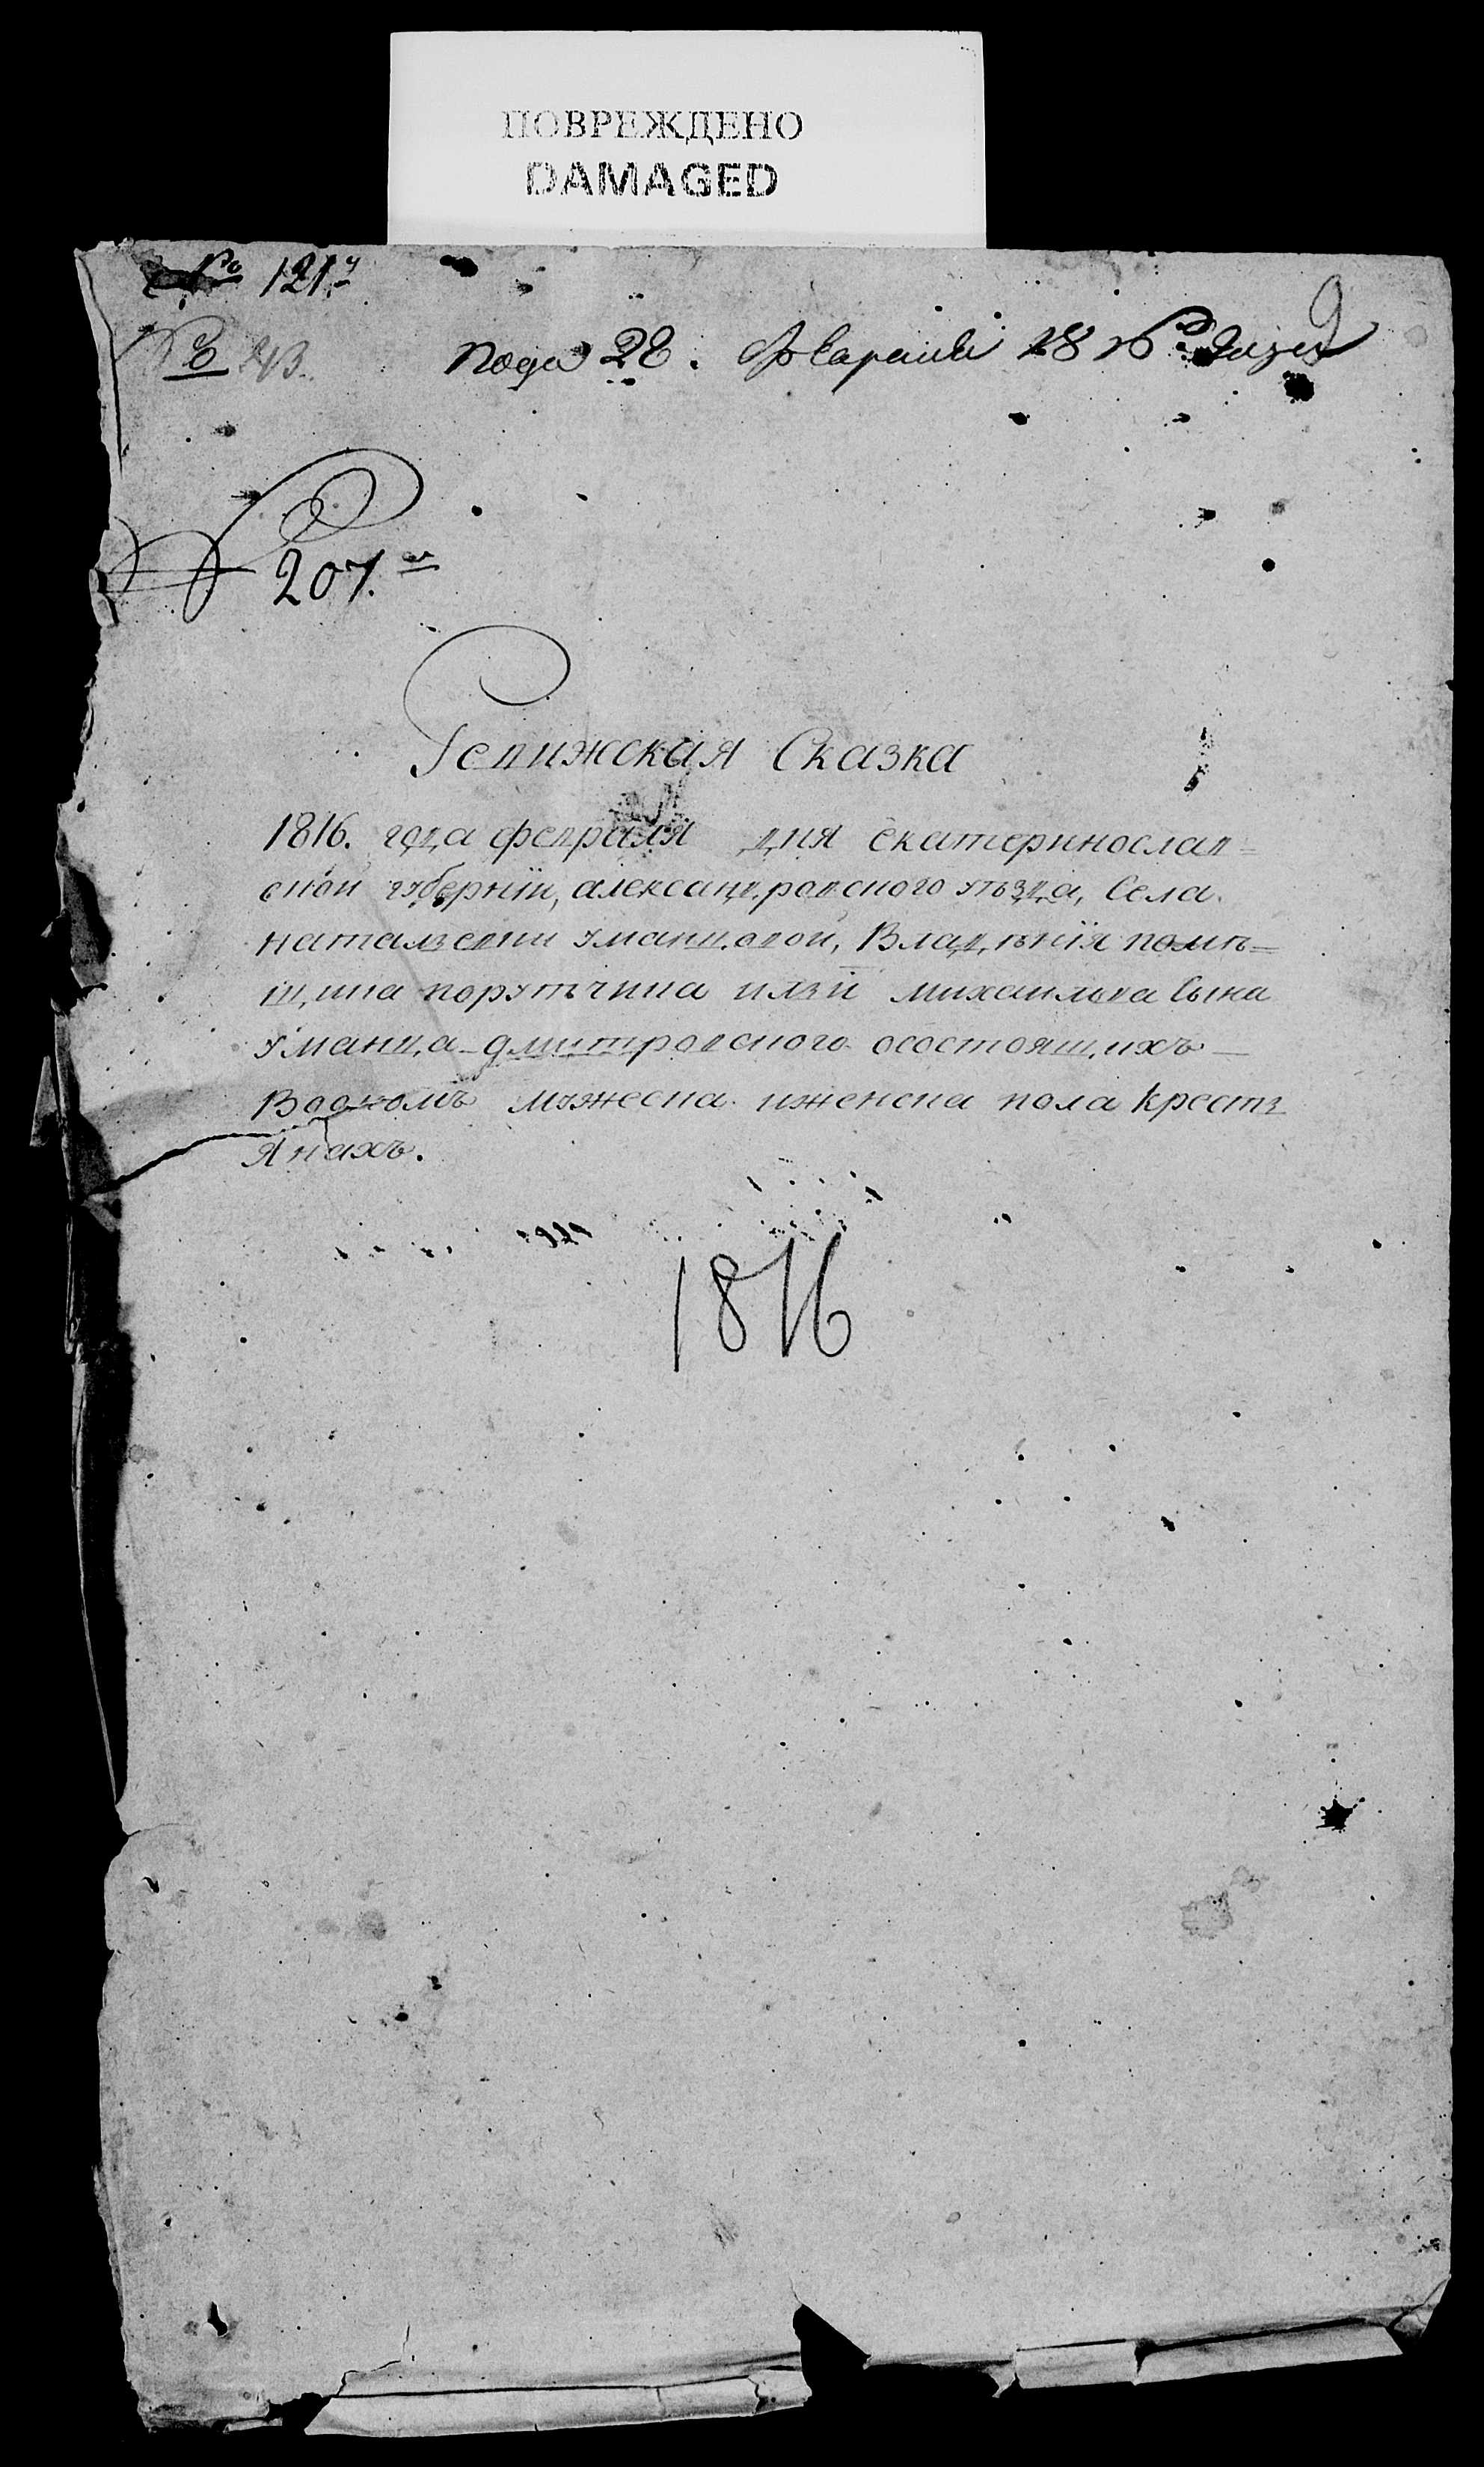 ПОВРЕЖДЕНО
DAMAGED
№ 121й
9
№ 243.
пода 28. Февраля 1816го года
№ 207.й
Ревижская Сказка
1816. года февраля дня екатеринослав=
скои губернїи, александровского уѣзда, Села
наталѣевки умансовой, Владѣнїя помѣ=
щика порутчика илїи михаилова Сына
уманца дмитровского осостоящихъ
Воономъ мужеска иженска пола крестъ
янахъ.
1816